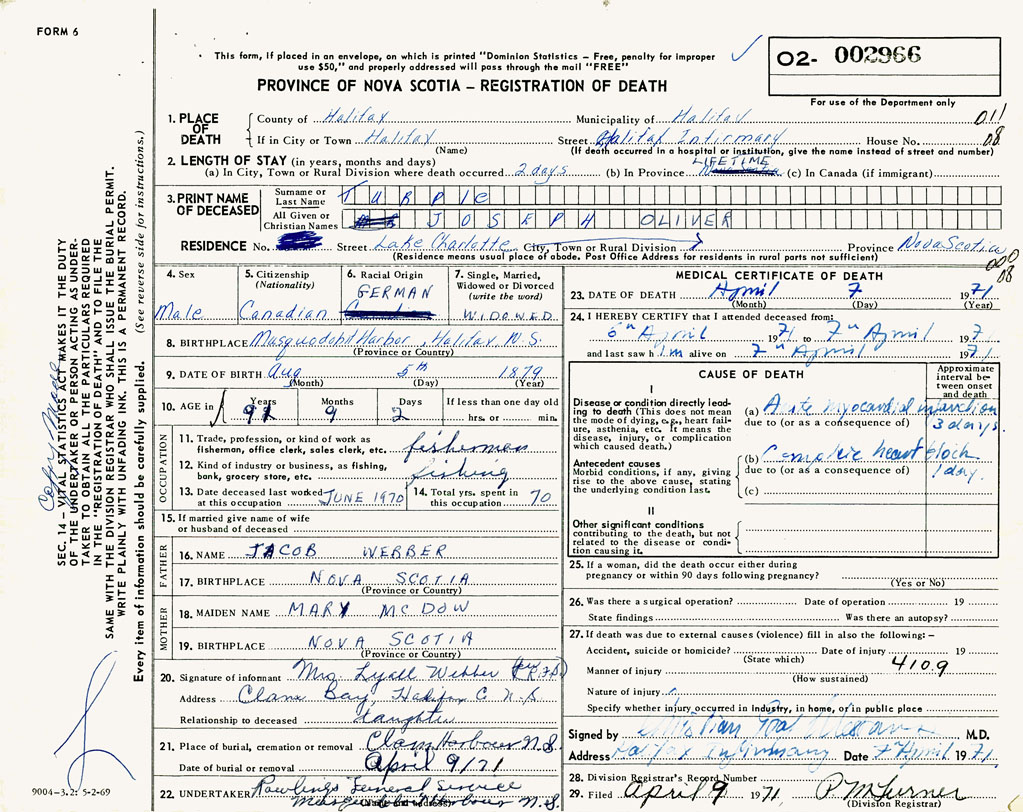 FORM 6
This form, if placed in an envelope, on which is printed "Dominion Statistics – Free, penalty for improper
use $50," and properly addressed will pass through the mail "FREE"
O2- 002966
For use of the Department only
PROVINCE OF NOVA SCOTIA – REGISTRATION OF DEATH
1. PLACE OF DEATH County of Halifax Municipality of Halifax 011
If in City or Town Halifax Street Halifax Infirmary House No. 08
(Name) (If death occurred in a hospital or institution, give the name instead of street and number)
2. LENGTH OF STAY (in years, months and days) LIFETIME
(a) In City, Town or Rural Division where death occurred 2 days (b) In Province (c) In Canada (if immigrant)
3. PRINT NAME OF DECEASED Surname or Last Name TURPLE
All Given or Christian Names JOSEPH OLIVER
RESIDENCE No. Street Lake Charlotte City, Town or Rural Division Province Nova Scotia
(Residence means usual place of abode. Post Office Address for residents in rural parts not sufficient)
000
08
4. Sex
Male
5. Citizenship
(Nationality)
Canadian
6. Racial Origin
GERMAN
7. Single, Married,
Widowed or Divorced
(write the word)
WIDOWED
8. BIRTHPLACE Musquodobt Harbor, Halifax, N.S.
(Province or Country)
9. DATE OF BIRTH Aug 5th 1879
(Month) (Day) (Year)
10. AGE in Years Months Days If less than one day old
91 9 2 hrs. or min.
OCCUPATION
11. Trade, profession, or kind of work as
fisherman, office clerk, sales clerk, etc. fisherman
12. Kind of industry or business, as fishing,
bank, grocery store, etc. fishing
13. Date deceased last worked at this occupation JUNE 1970
14. Total yrs. spent in this occupation 70
15. If married give name of wife
or husband of deceased
FATHER
16. NAME JACOB WEBBER
17. BIRTHPLACE NOVA SCOTIA
(Province or Country)
MOTHER
18. MAIDEN NAME MARY MC DOW
19. BIRTHPLACE NOVA SCOTIA
(Province or Country)
20. Signature of informant Mrs. Lyall Webber
Address Clam Bay, Halifax C. N.S
Relationship to deceased daughter
21. Place of burial, cremation or removal Clam Harbour N.S.
Date of burial or removal April 9/71
22. UNDERTAKER Rawlings Funeral Service
Musquodoboit Harbour N.S.
(Name and address)
MEDICAL CERTIFICATE OF DEATH
23. DATE OF DEATH April 7 1971
(Month) (Day) (Year)
24. I HEREBY CERTIFY that I attended deceased from:
6th April 1971 to 7th April 1971
and last saw him alive on 7th April 1971
CAUSE OF DEATH
Approximate
interval be-
tween onset
and death
I
Disease or condition directly lead-
ing to death (This does not mean
the mode of dying, e.g., heart fail-
ure, asthenia, etc. It means the
disease, injury, or complication
which caused death.)
(a) Acute myocardial infarction
due to (or as a consequence of) 3 days
Antecedent causes
Morbid conditions, if any, giving
rise to the above cause, stating
the underlying condition last.
(b) Complete heart block
due to (or as a consequence of) 1 day.
(c)
II
Other significant conditions
contributing to the death, but not
related to the disease or condi-
tion causing it.
25. If a woman, did the death occur either during
pregnancy or within 90 days following pregnancy?
(Yes or No)
26. Was there a surgical operation? Date of operation 19
State findings Was there an autopsy?
27. If death was due to external causes (violence) fill in also the following: –
Accident, suicide or homicide? Date of injury 19
(State which) 410.9
Manner of injury
(How sustained)
Nature of injury
Specify whether injury occurred in industry, in home, or in public place
Signed by M.D.
Address Halifax Infirmary Date 7 April 1971
28. Division Registrar's Record Number
29. Filed April 9 1971 P M Turner
(Division Registrar)
SEC. 14 – VITAL STATISTICS ACT MAKES IT THE DUTY
OF THE UNDERTAKER OR PERSON ACTING AS UNDER-
TAKER TO OBTAIN ALL THE PARTICULARS REQUIRED
IN THE "REGISTRATION OF DEATH" AND TO FILE THE
SAME WITH THE DIVISION REGISTRAR WHO SHALL ISSUE THE BURIAL PERMIT.
WRITE PLAINLY WITH UNFADING INK. THIS IS A PERMANENT RECORD.
Every item of information should be carefully supplied. (See reverse side for instructions.)
9004-3.2: 5-2-69